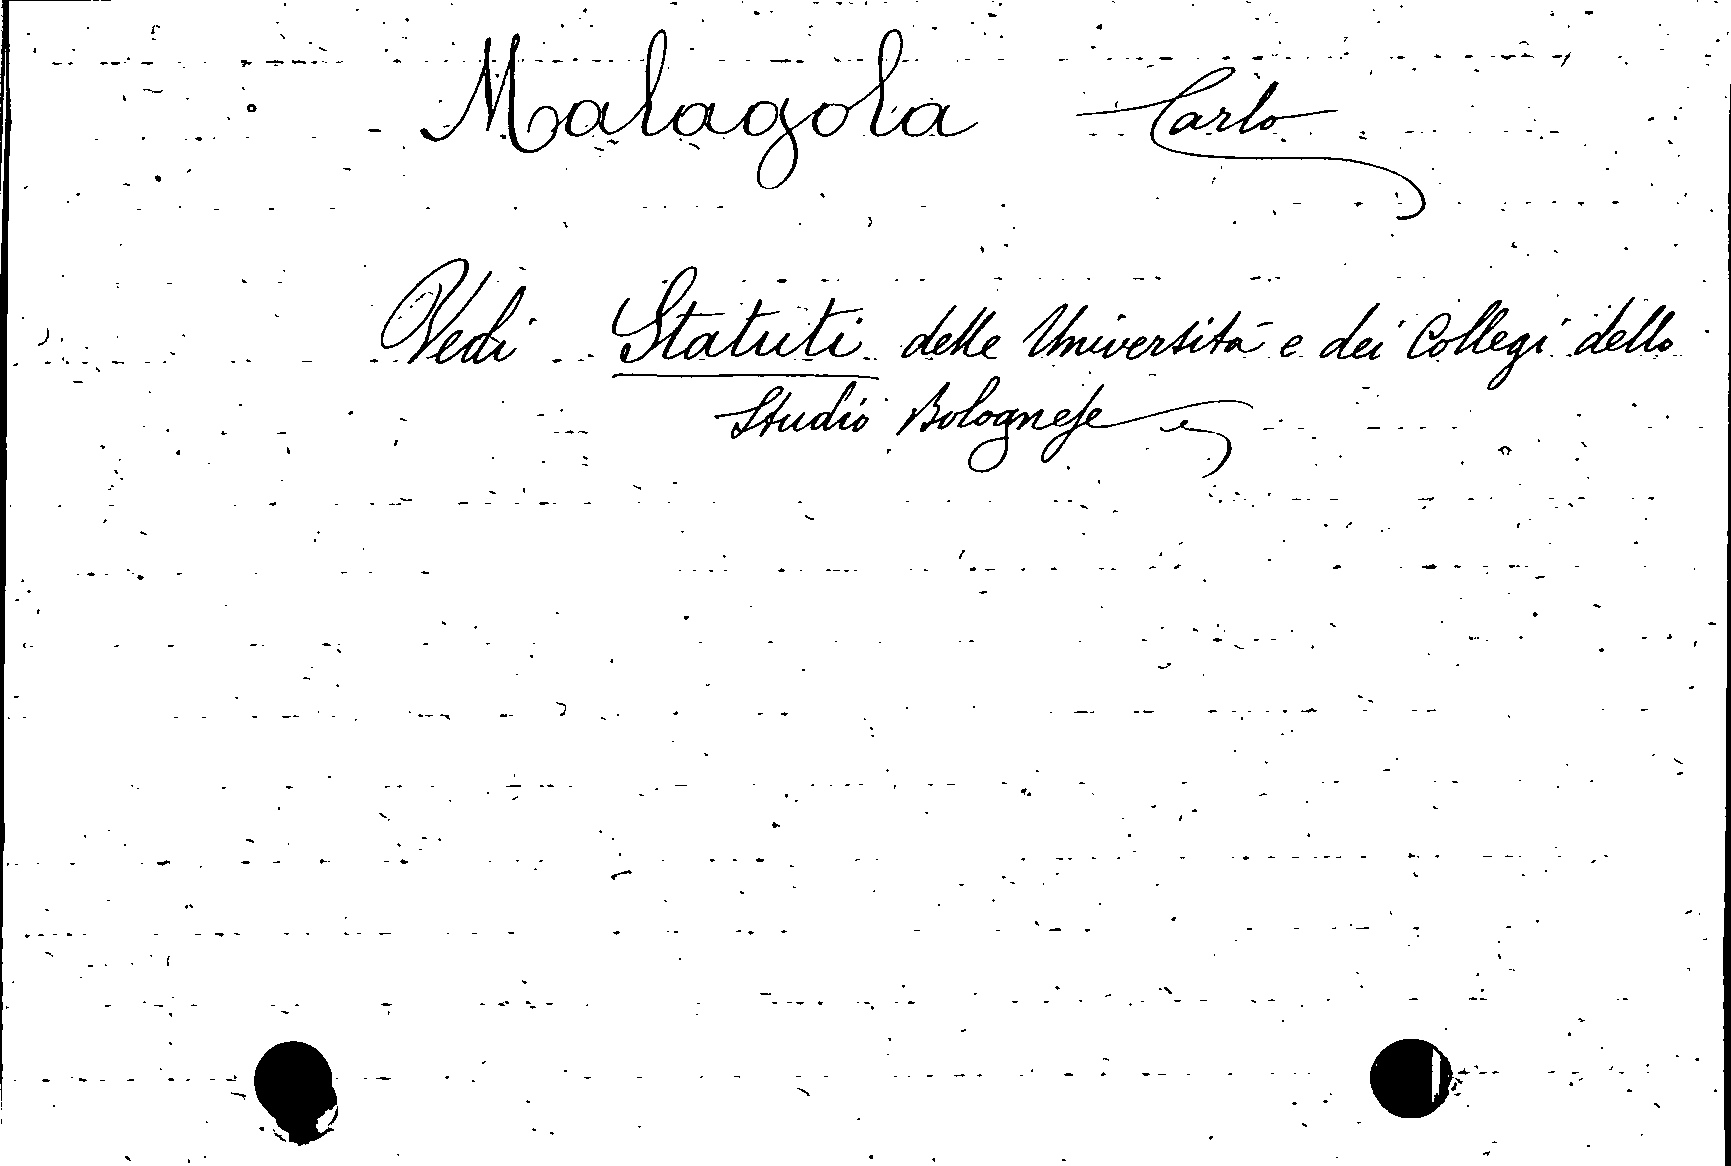 Malagola Carlo
Vedi Statuti delle Università e dei Collegi dello
Studio Bolognese